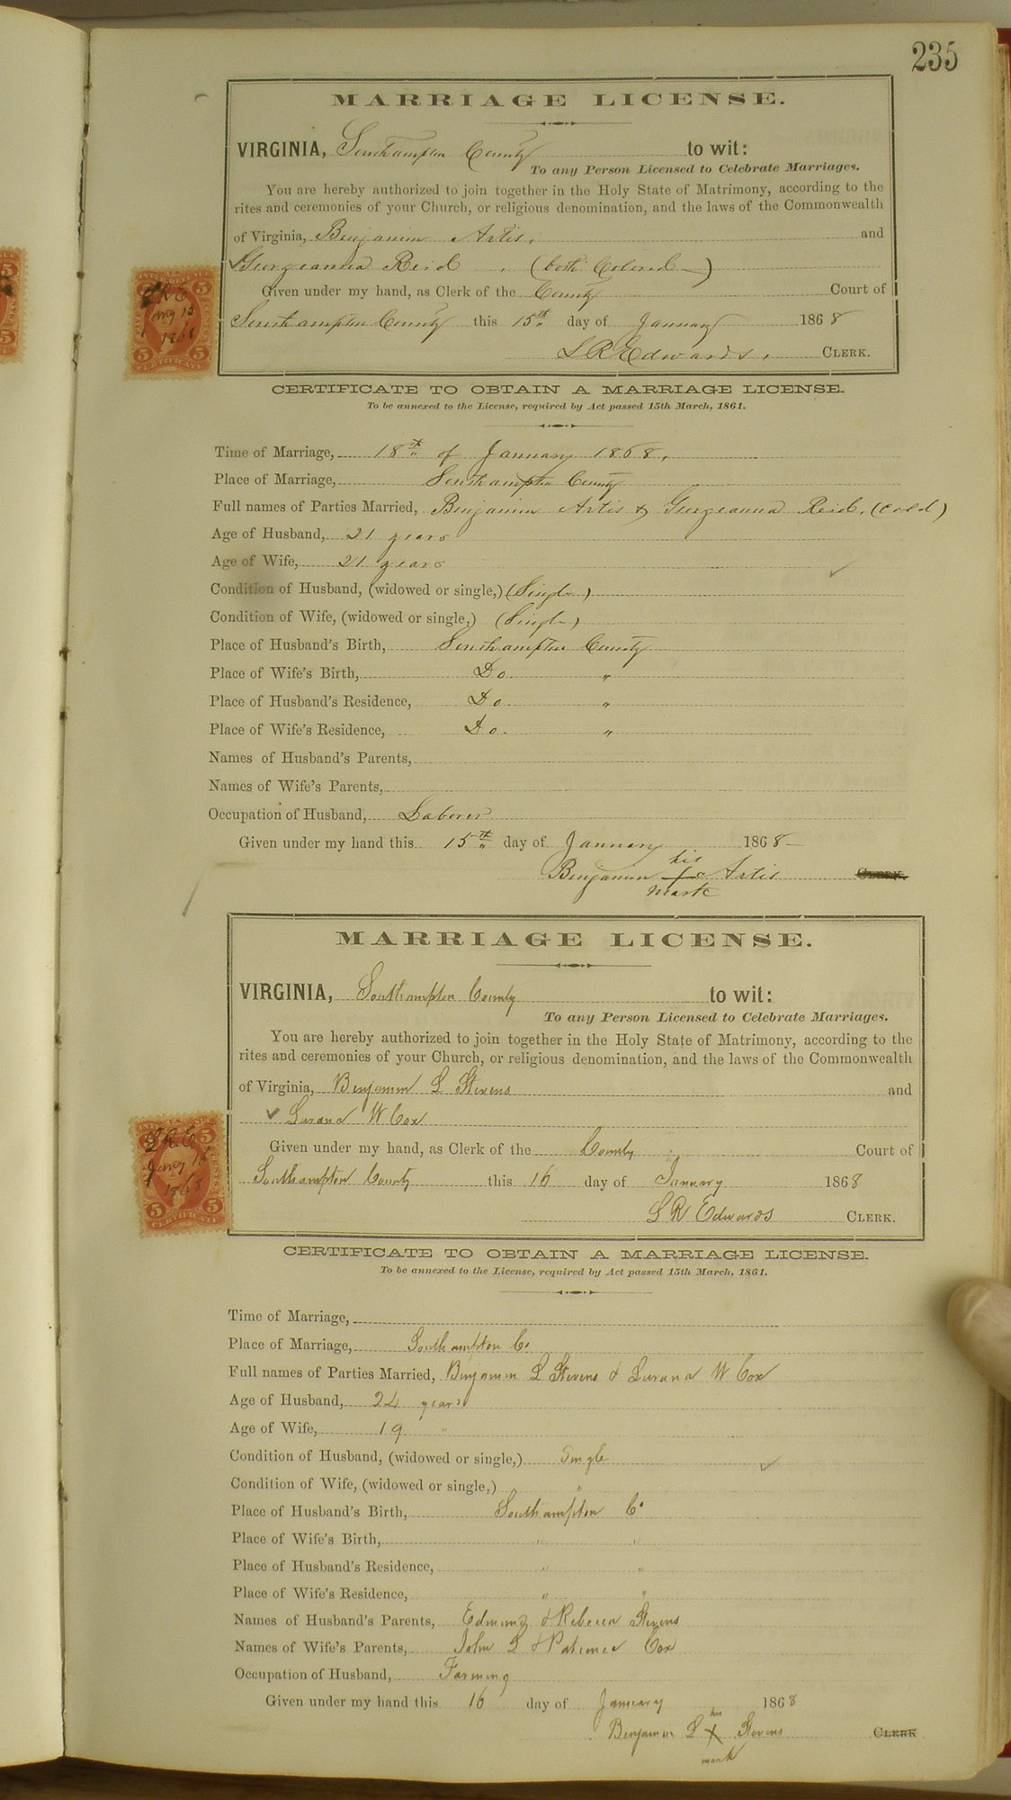 235
MARRIAGE LICENSE.
VIRGINIA, Southampton County to wit:
To any Person Licensed to Celebrate Marriages.
You are hereby authorized to join together in the Holy State of Matrimony, according to the
rites and ceremonies of your Church, or religious denomination, and the laws of the Commonwealth
of Virginia, Benjamin Artis, and
Georgeanna Reid. (both Colored)
Given under my hand, as Clerk of the County Court of
Southampton County this 15th day of January 1868
L R Edwards, CLERK.
5 5
Jany 15
1868
5 5
CERTIFICATE
CERTIFICATE TO OBTAIN A MARRIAGE LICENSE.
To be annexed to the License, required by Act passed 15th March, 1861.
Time of Marriage, 18th of January 1868.
Place of Marriage, Southampton County
Full names of Parties Married, Benjamin Artis & Georgeanna Reid. (cold)
Age of Husband, 21 years
Age of Wife, 21 years
Condition of Husband, (widowed or single,) (Single)
Condition of Wife, (widowed or single,) (Single)
Place of Husband's Birth, Southampton County
Place of Wife's Birth, Do. "
Place of Husband's Residence, Do. "
Place of Wife's Residence, Do. "
Names of Husband's Parents,
Names of Wife's Parents,
Occupation of Husband, Laborer
Given under my hand this 15th day of January 1868
his
Benjamin X Artis CLERK.
mark
MARRIAGE LICENSE.
VIRGINIA, Southampton County to wit:
To any Person Licensed to Celebrate Marriages.
You are hereby authorized to join together in the Holy State of Matrimony, according to the
rites and ceremonies of your Church, or religious denomination, and the laws of the Commonwealth
of Virginia, Benjamin L Stevens and
Lurana W Cox
Given under my hand, as Clerk of the County Court of
Southampton County this 16 day of January 1868
L R Edwards CLERK.
L R E
Jany 16
1868
5 5
CERTIFICATE
CERTIFICATE TO OBTAIN A MARRIAGE LICENSE.
To be annexed to the License, required by Act passed 15th March, 1861.
Time of Marriage,
Place of Marriage, Southampton Co
Full names of Parties Married, Benjamin L Stevens & Lurana W Cox
Age of Husband, 24 years
Age of Wife, 19 "
Condition of Husband, (widowed or single,) Single
Condition of Wife, (widowed or single,) "
Place of Husband's Birth, Southampton Co
Place of Wife's Birth, " "
Place of Husband's Residence, " "
Place of Wife's Residence, " "
Names of Husband's Parents, Edmund & Rebecca Stevens
Names of Wife's Parents, John & Patience Cox
Occupation of Husband, Farming
Given under my hand this 16 day of January 1868
his
Benjamin L X Stevens CLERK
mark